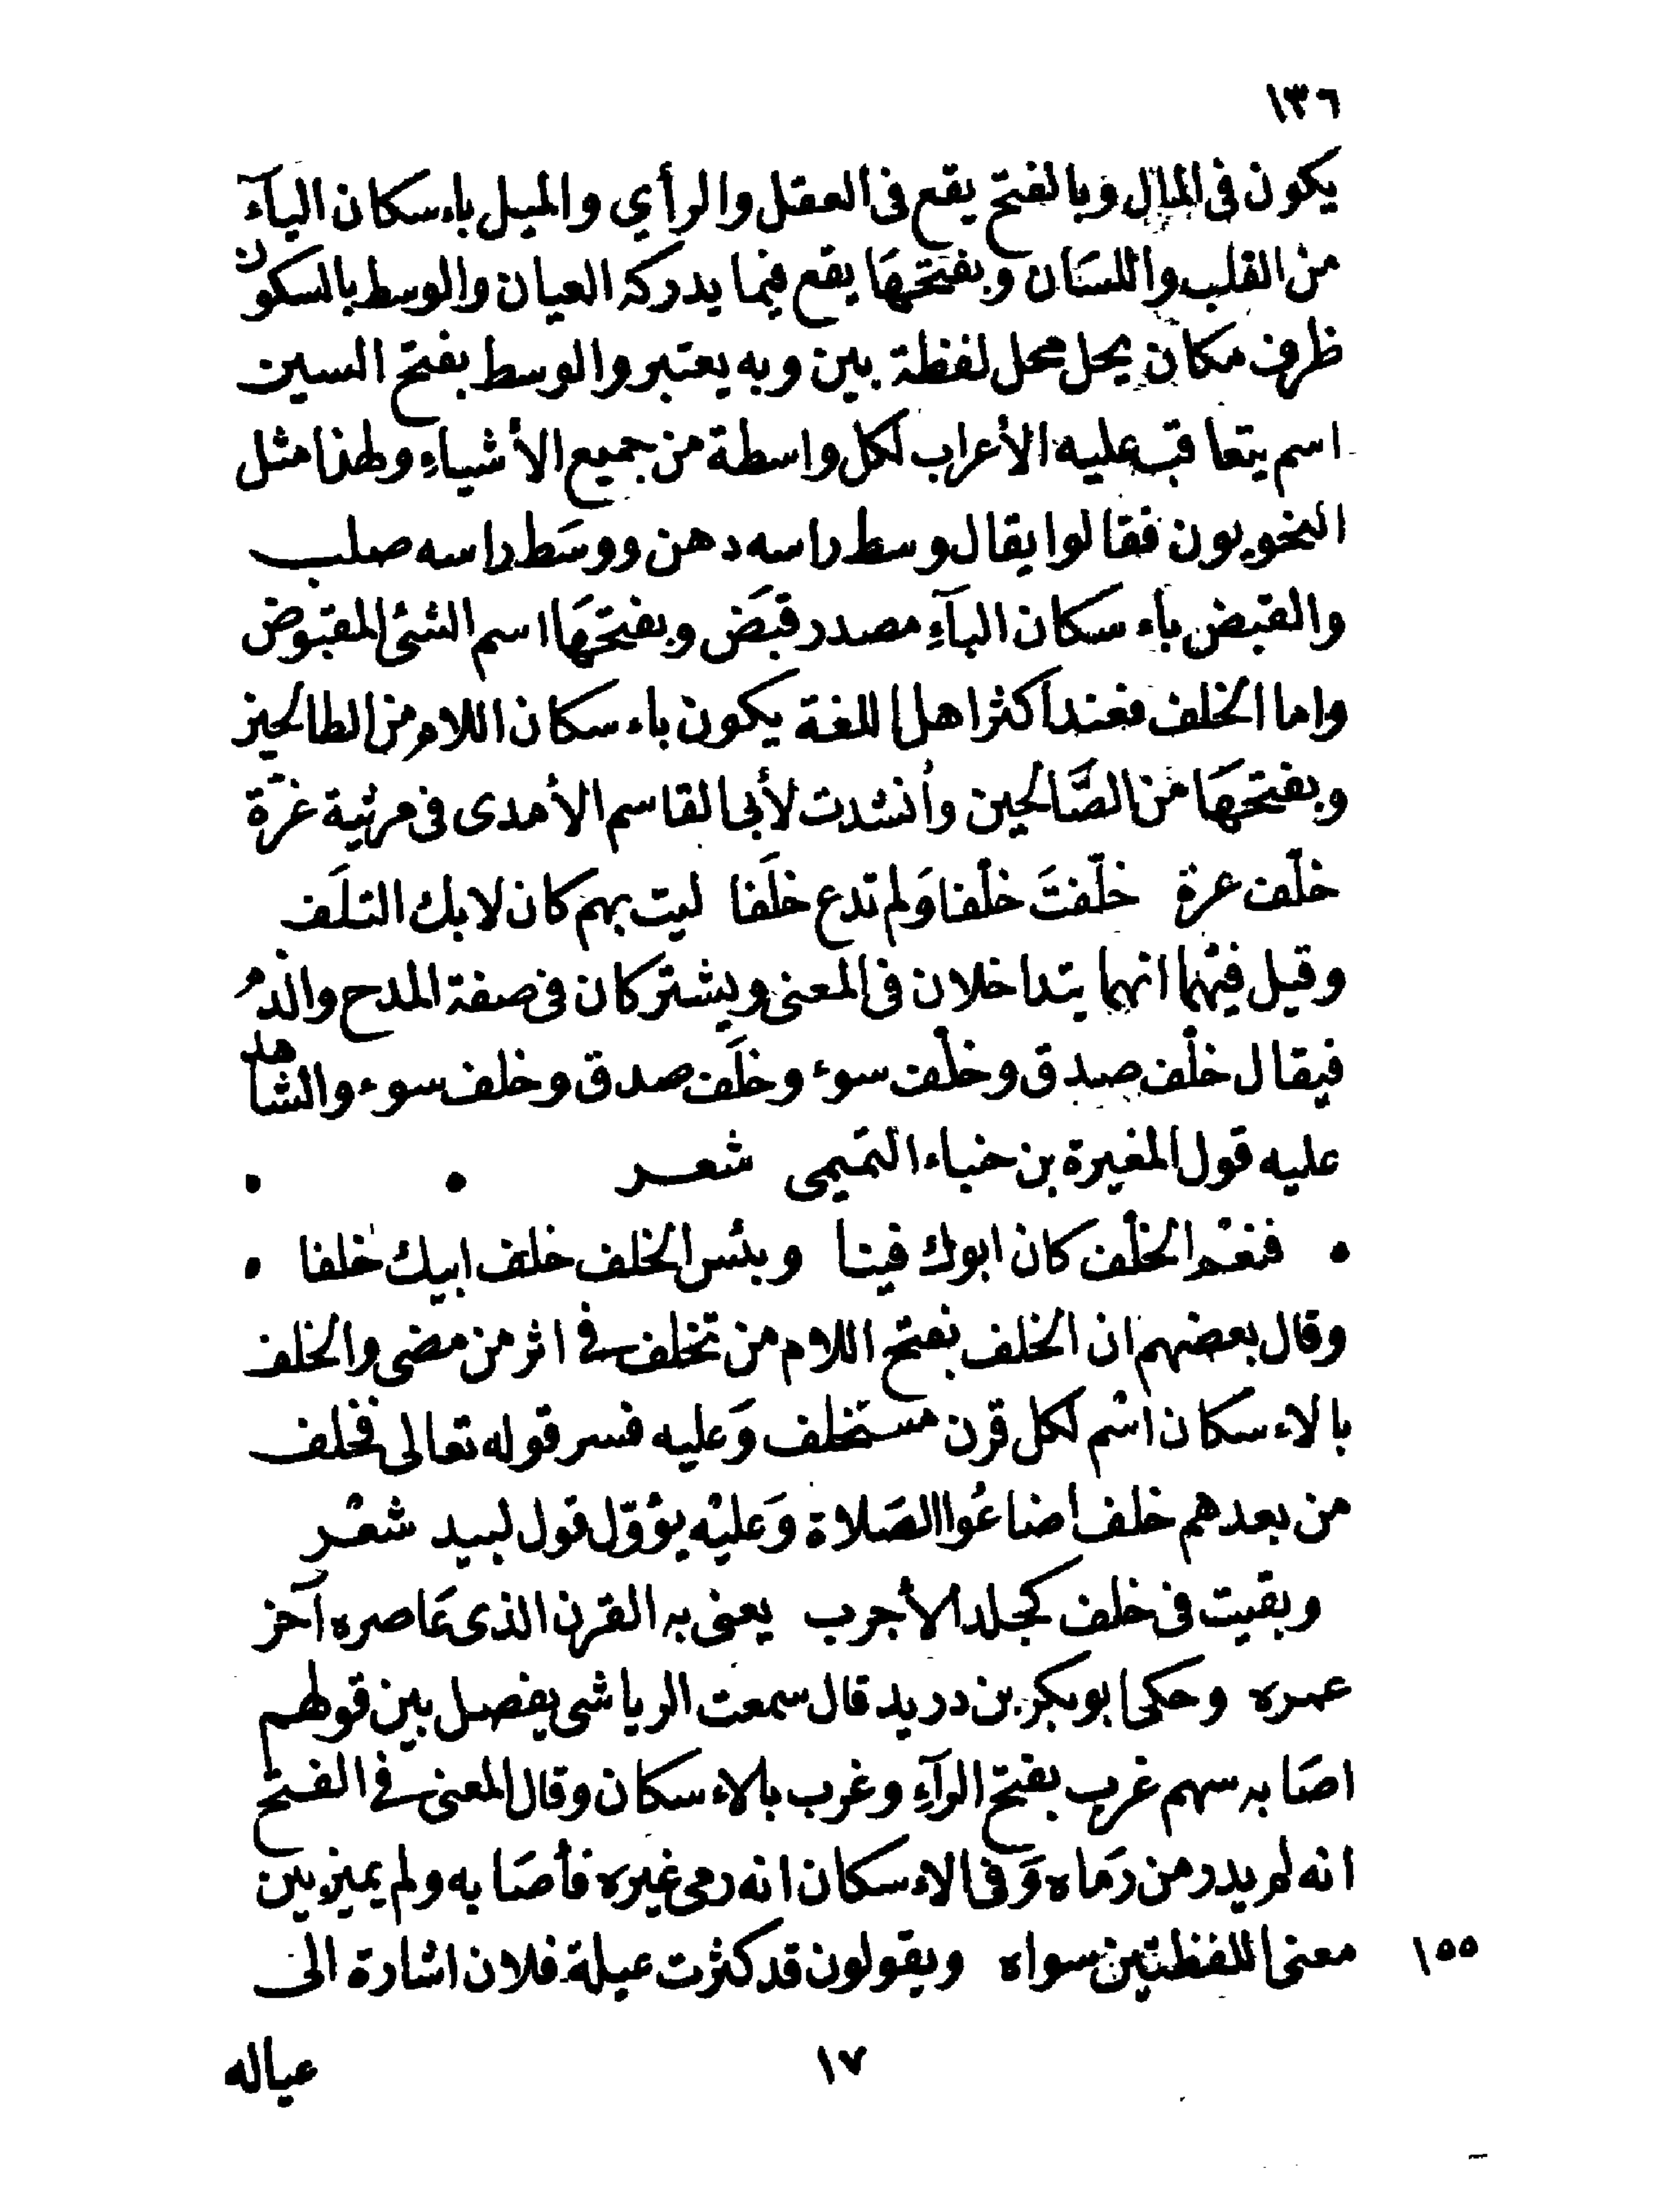 ١٣٦
يكون فى المال وبالفتح يقع فى العقل والرأي والميل باءسكان اليآء
من القلب واللسَان وبفتحهَا يقع فيما يدركه العيان والوسط بالسكون
ظرف مكان يحل محل لفظة بين وبه يعتبر والوسط بفتح السين
اسم يتعاقب عليه الأعراب لكل واسطة من جميع الأشياءِ ولهذا مثل
النحويون فقالوا يقال وسط راسه دهن ووسَط راسه صلب
والقبض باءسكان البآءِ مصدر قبَض وبفتحهَا اسم الشئ المقبوض
واما الخلف فعند أكثر اهل اللغة يكون باءسكان اللام من الطالحين
وبفتحهَا من الصَّالحين وأُنشدت لأبى القاسم الأمدى فى مرثية غرّة
خلّف عرة خلّفتَ خلْفا وَلم تدع خلَفا ليت بهم كان لا بك التلَف
وقيل فيهما انهما يتداخلان فى المعنى ويشتركان فى صفة المدح والذم
فيقال خلْف صدق وخلْف سوء وخلَف صدق وخلف سوء والشاهد
عليه قول المغيرة بن حنباء التميمى شعر
فنعْم الخلْف كان ابوك فينا وبئس الخلف خلف ابيك خلفا
وقال بعضهم ان الخلف بفتح اللام من تخلف فى اثر من مضى والخلف
بالاءسكان اسْم لكل قرن مستخلف وَعليه فسر قوله تعالى فخلف
من بعدهم خلف اضاعُوا الصَلاة وَعليْه يؤوّل قول لبيد شعْر
وبقيت فى خلف كجلد الأجرب يعنى به القرن الذى عَاصره آخر
عمره وحكى ابو بكر بن دريد قال سمعت الرياشى يفصل بين قولهم
اصَابه سهم غرب بفتح الرآءِ وغرب بالاءسكان وقال المعنى فى الفتح
انه لم يدر من رَماه وَفى الاءسكان انه رمى غيره فأصَابه ولم يميز بين
معنى اللفظتين سواه ويقولون قد كثرت عيلة فلان اشارة الى
١٥٥
١٧
عياله